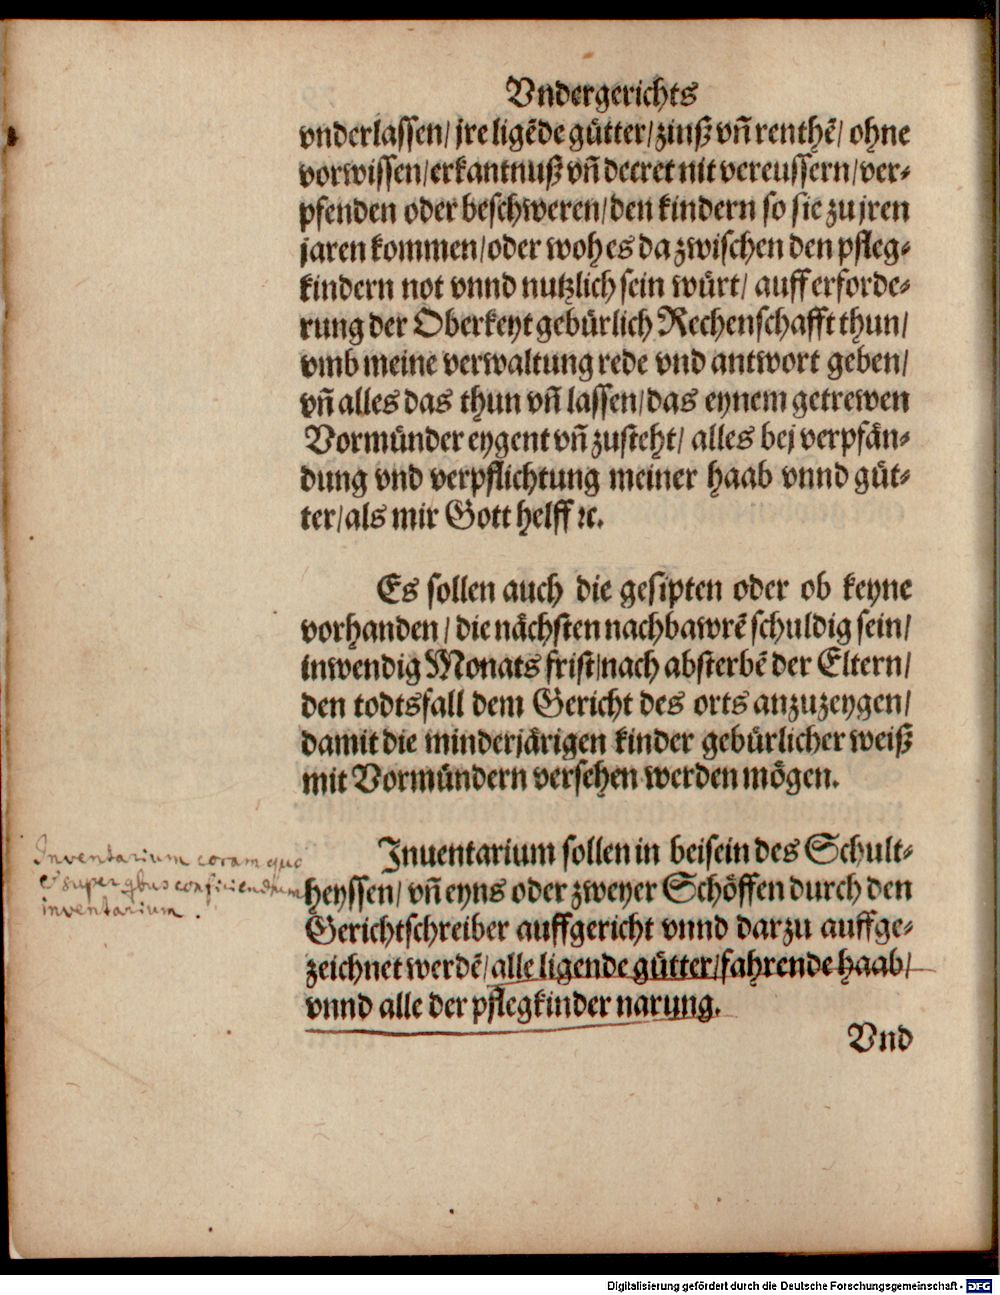 Vndergerichts
vnderlassen/ jre ligēde gütter/ zinß vñ renthē/ ohne
vorwissen/ erkantnuß vñ decret nit vereussern/ ver-
pfenden oder beschweren/ den kindern so sie zu jren
jaren kommen/ oder woh es dazwischen den pfleg-
kindern not vnnd nutzlich sein würt/ auff erforde-
rung der Oberkeyt gebürlich Rechenschafft thun/
vmb meine verwaltung rede vnd antwort geben/
vñ alles das thun vñ lassen/ das eynem getrewen
Vormünder eygent vñ zusteht/ alles bej verpfän-
dung vnd verpflichtung meiner haab vnnd güt-
ter/ als mir Gott helff ꝛc.
Es sollen auch die gesipten oder ob keyne
vorhanden/ die nächsten nachbawrē schuldig sein/
inwendig Monats frist/ nach absterbē der Eltern/
den todtsfall dem Gericht des orts anzuzeygen/
damit die minderjärigen kinder gebürlicher weiß
mit Vormündern versehen werden mögen.
Inuentarium sollen in beisein des Schult-
heyssen/ vñ eyns oder zweyer Schöffen durch den
Gerichtschreiber auffgericht vnnd darzu auffge-
zeichnet werdē/ alle ligende gütter/ fahrende haab/
vnnd alle der pflegkinder narung.
Vnd
Inventarium coram quo
& super qbus conficiendum
inventarium.
Digitalisierung gefördert durch die Deutsche Forschungsgemeinschaft - DFG